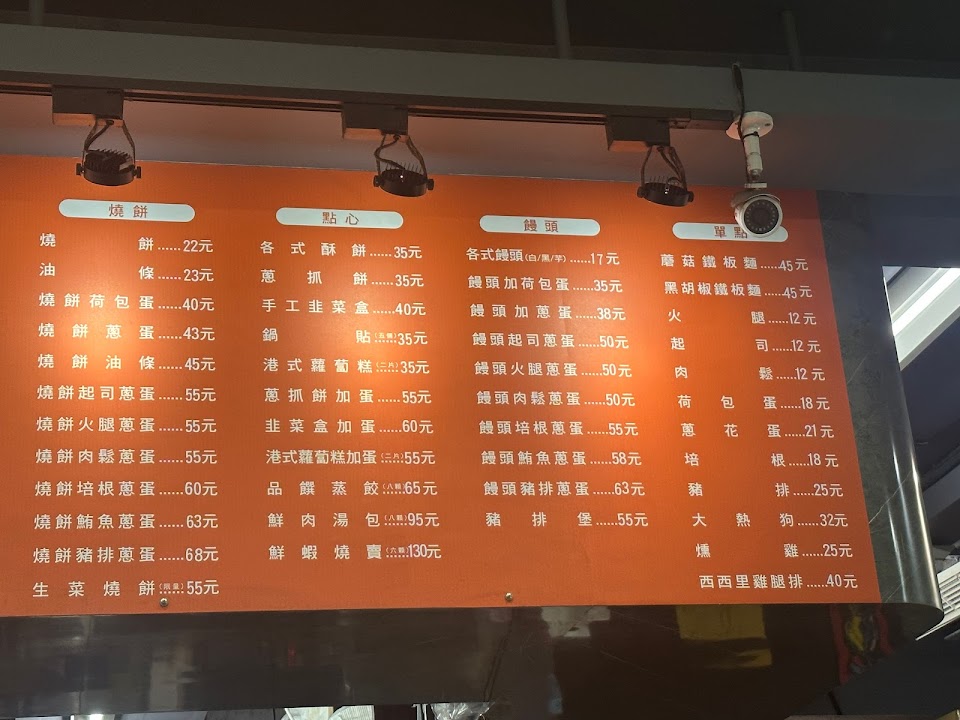 燒餅
燒餅......22元
油條......23元
燒餅荷包蛋......40元
燒餅蔥蛋......43元
燒餅油條......45元
燒餅起司蔥蛋......55元
燒餅火腿蔥蛋......55元
燒餅肉鬆蔥蛋......55元
燒餅培根蔥蛋......60元
燒餅鮪魚蔥蛋......63元
燒餅豬排蔥蛋......68元
生菜燒餅(限量)......55元
點心
各式酥餅......35元
蔥抓餅......35元
手工韭菜盒......40元
鍋貼......35元
港式蘿蔔糕(二片)......35元
蔥抓餅加蛋......55元
韭菜盒加蛋......60元
港式蘿蔔糕加蛋(二片)......55元
品饌蒸餃(八顆)......65元
鮮肉湯包(八顆)......95元
鮮蝦燒賣(六顆)......130元
饅頭
各式饅頭(白/黑/芋)......17元
饅頭加荷包蛋......35元
饅頭加蔥蛋......38元
饅頭起司蔥蛋......50元
饅頭火腿蔥蛋......50元
饅頭肉鬆蔥蛋......50元
饅頭培根蔥蛋......55元
饅頭鮪魚蔥蛋......58元
饅頭豬排蔥蛋......63元
豬排堡......55元
單點
蘑菇鐵板麵......45元
黑胡椒鐵板麵......45元
火腿......12元
起司......12元
肉鬆......12元
荷包蛋......18元
蔥花蛋......21元
培根......18元
豬排......25元
大熱狗......32元
燻雞......25元
西西里雞腿排......40元